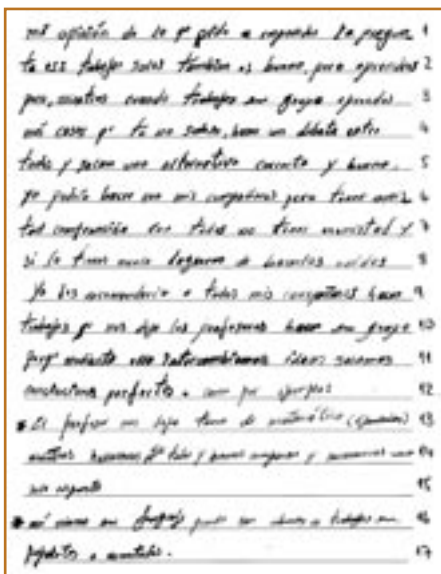 mi opinión de lo q' pide a responder la pregun 1
ta es: trabajar solos también es bueno, para aprender 2
pero, nosotros cuando trabajas en grupo aprendes 3
más cosas q' tu no sabes, hacen un debate entre 4
todos y sacan una alternativa correcta y buena. 5
yo podría hacer con mis compañeros para tener amis 6
tad comprensión con todos no tienen amistad y 7
si lo tienen nunca dejarme de hacerlos unidos 8
Yo les recomendaría a todos mis compañeros hacer 9
trabajos q' nos deja los profesores hacer en grupo 10
porq' mediante eso intercambiamos ideas sacamos 11
conclusiones perfectas. como por ejemplo: 12
El profesor nos deja tarea de matemática (ejercicios) 13
nosotros hacemos todo y y sacamos una 14
sola respuesta 15
así mismo en lenguaje puede ser obras o trabajos en 16
papelotes o mentales. 17